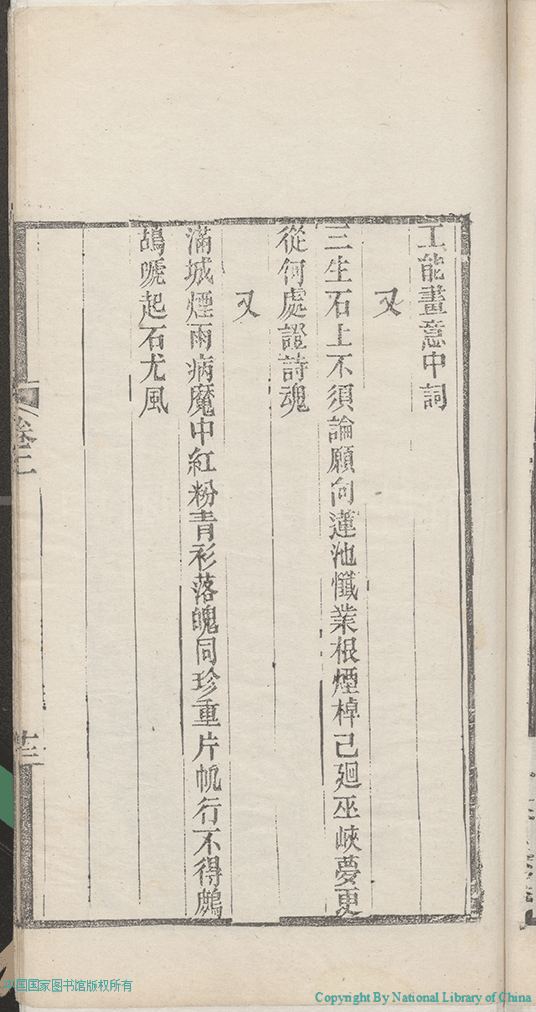 工能畫意中詞
又
三生石上不須論願向蓮池懺業根煙棹已廻巫峽夢更
從何處證詩魂
又
滿城煙雨病魔中紅粉青衫落魄同珍重片帆行不得鷓
鴣唬起石尤風
卷二
国国家图书馆版权所有
Copyright By National Library of China